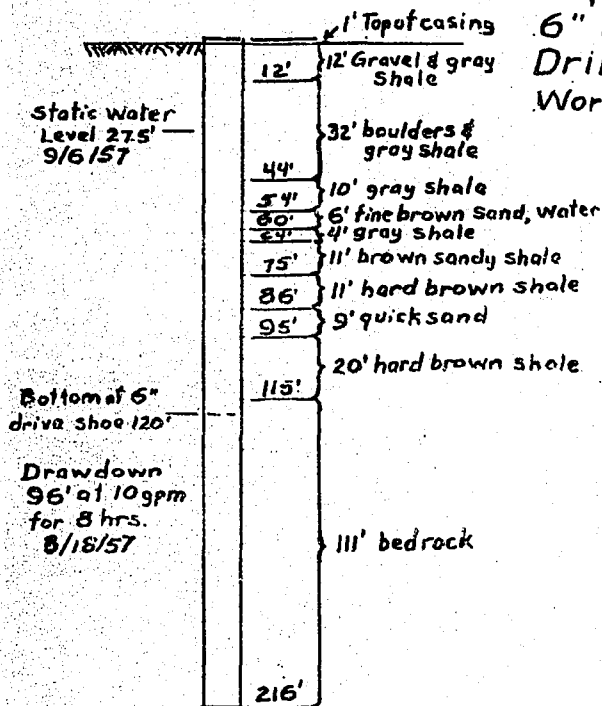 1' Top of casing
6"
Dril
Wor
12'
12' Gravel & gray
Shale
Static Water
Level 27.5'
9/6/57
32' boulders &
gray shale
44'
10' gray shale
54'
60'
6' fine brown Sand, Water
64'
4' gray shale
75'
11' brown sandy shale
86'
11' hard brown shale
95'
9' quicksand
20' hard brown shale
115'
Bottom of 6"
drive shoe 120'
Drawdown
96' at 10 gpm
for 8 hrs.
8/18/57
111' bedrock
216'